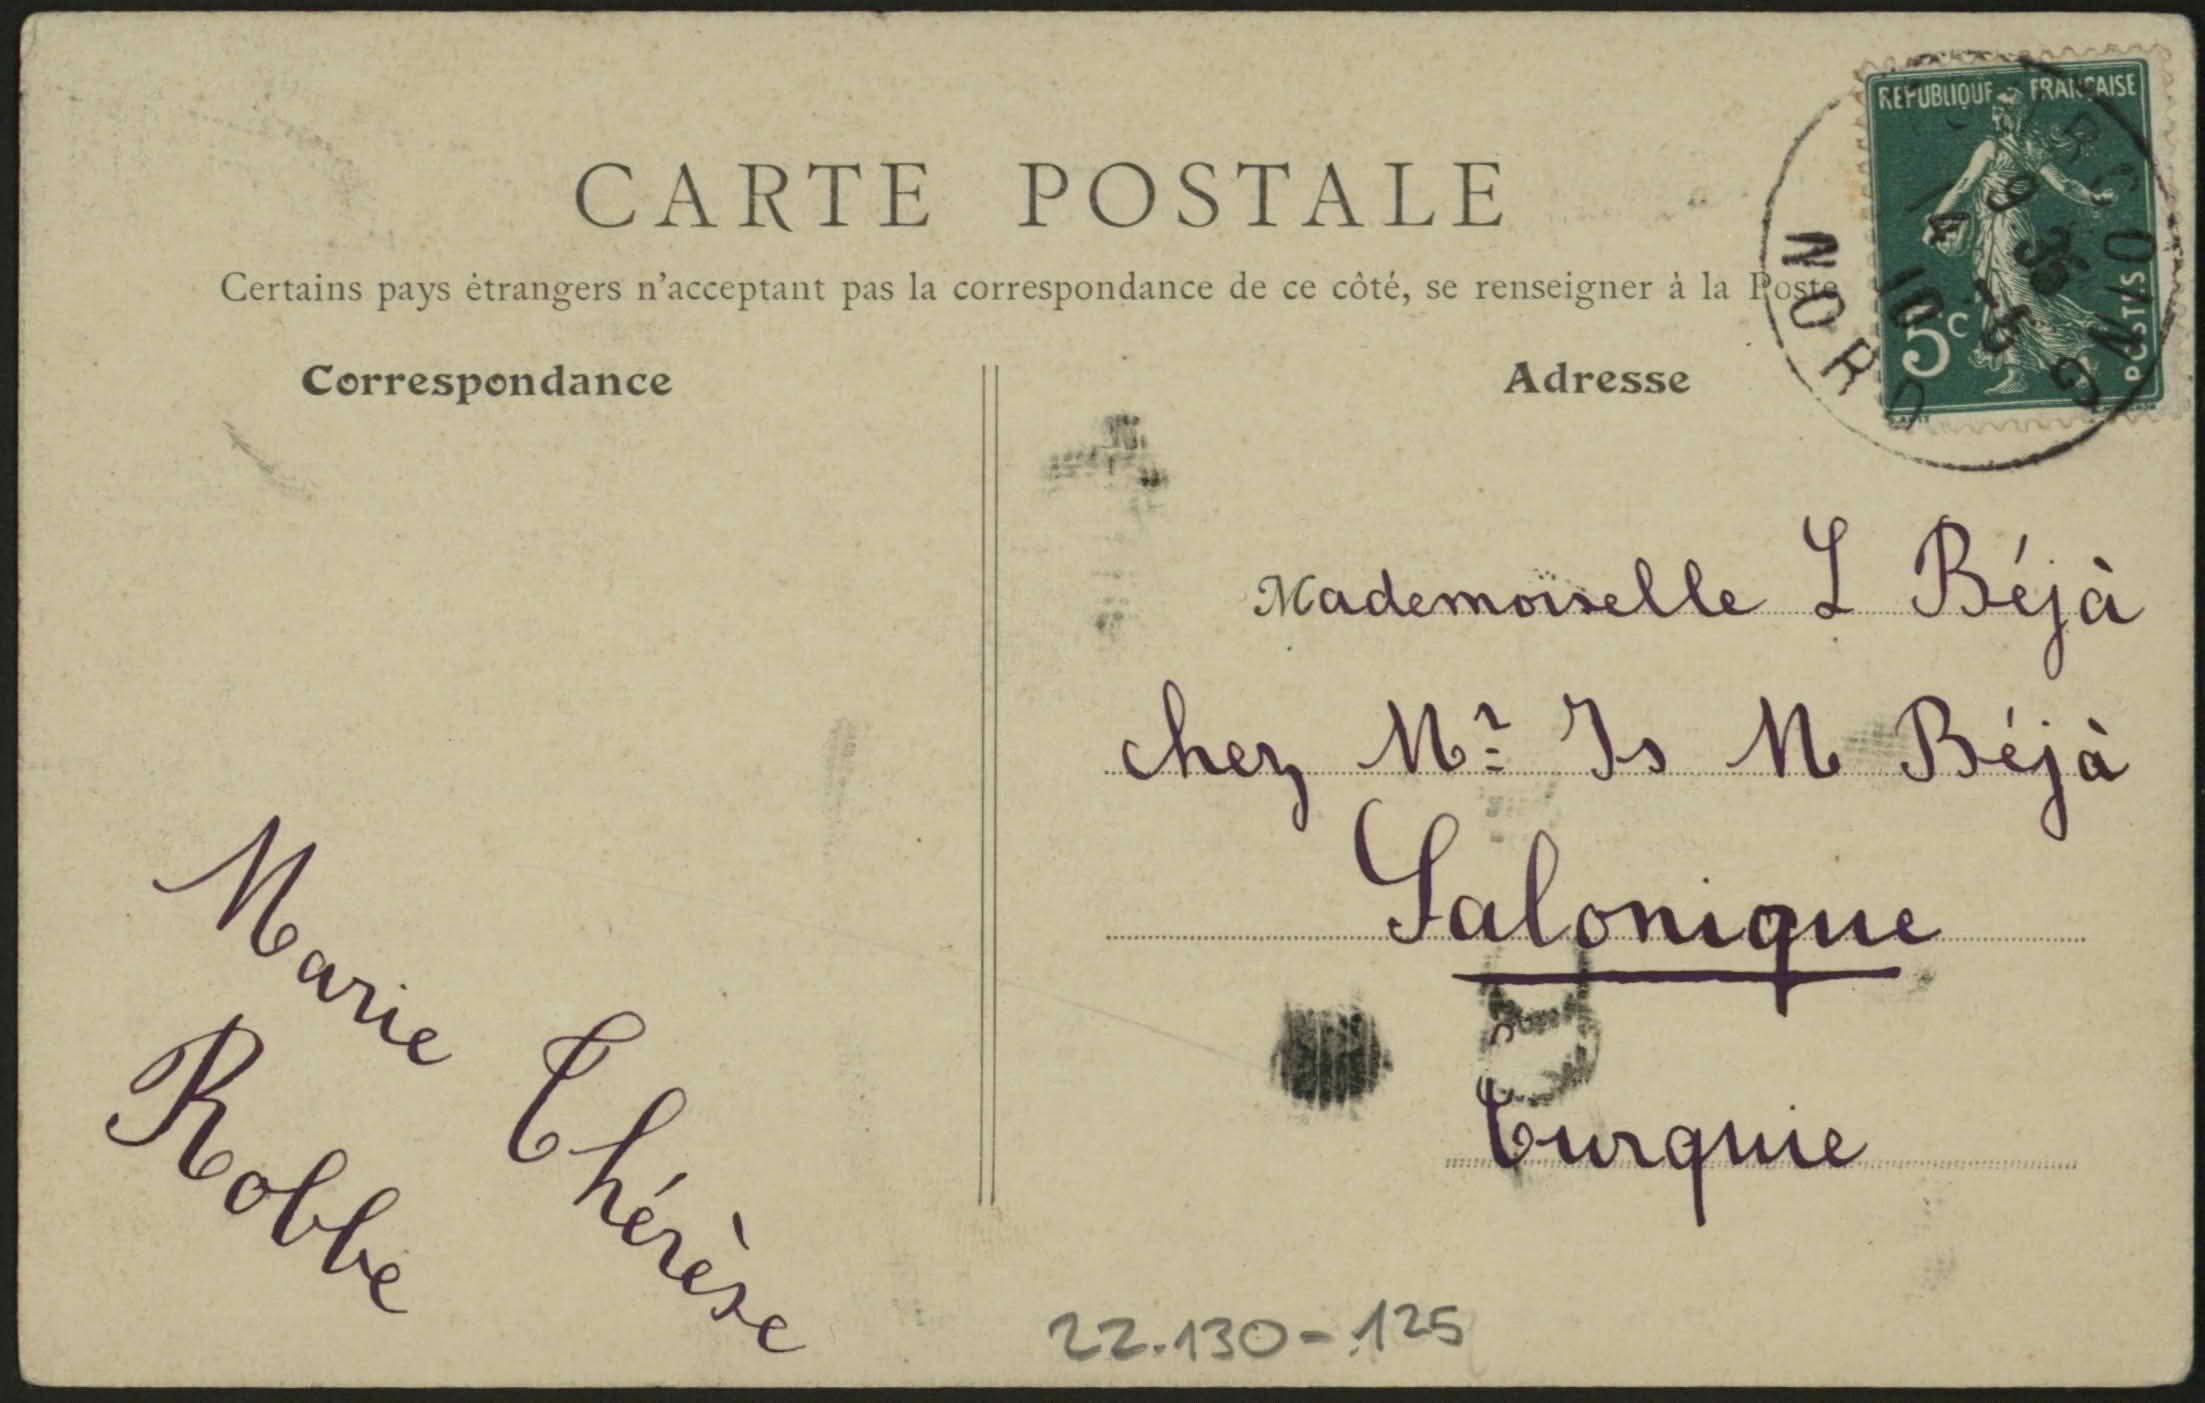 CARTE POSTALE
Certains pays étrangers n'acceptant pas la correspondance de ce côté, se renseigner à la Poste
Correspondance
Adresse
REPUBLIQUE FRANÇAISE
5c
POSTES
TOURCOING
9 35
14 - 5
10
NORD
Mademoiselle L Béjà
chez Mr Is M Béjà
Salonique
Turquie
Marie Thérèse
Robbe
22.130-.125